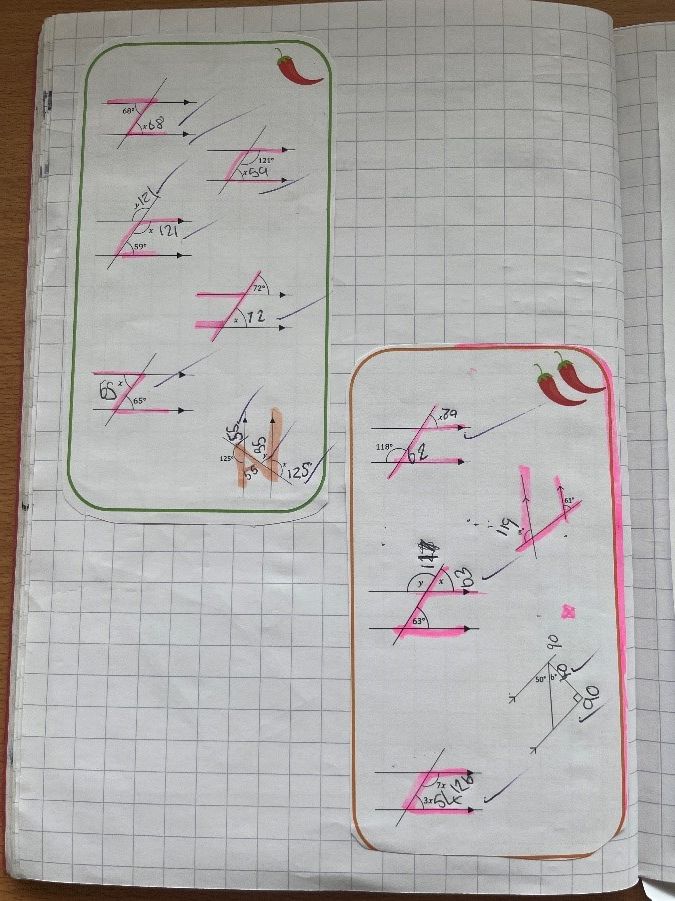 68°
x 68
121°
x 59
x 121
x 121
59°
72°
x 72
65 x
65°
55
125°
55
y
55
x
125
x 62
118°
62
61°
119
117
y x 63
63°
90
50° b° 40
90
7x 126
3x 54